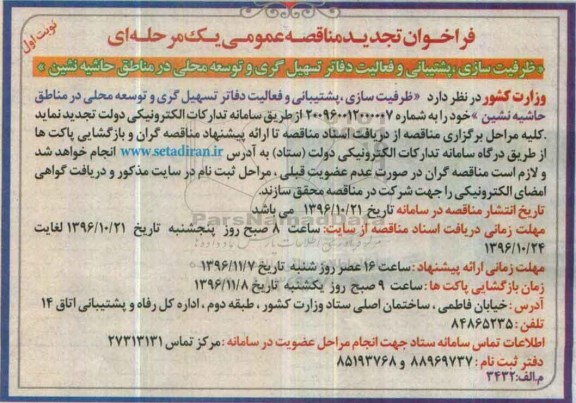 نوبت اول
فراخوان تجدید مناقصه عمومی یک مرحله‌ای
« ظرفیت سازی ، پشتیبانی و فعالیت دفاتر تسهیل گری و توسعه محلی در مناطق حاشیه نشین »
وزارت کشور در نظر دارد «ظرفیت سازی ,پشتیبانی و فعالیت دفاتر تسهیل گری و توسعه محلی در مناطق
حاشیه نشین »خود را به شماره ۲۰۰۹۶۰۰۱۲۰۰۰۰۰۷ از طریق سامانه تدارکات الکترونیکی دولت تجدید نماید
.کلیه مراحل برگزاری مناقصه از دریافت اسناد مناقصه تا ارائه پیشنهاد مناقصه گران و بازگشایی پاکت ها
از طریق درگاه سامانه تدارکات الکترونیکی دولت (ستاد) به آدرس www.setadiran.ir انجام خواهد شد
و لازم است مناقصه گران در صورت عدم عضویت قبلی ، مراحل ثبت نام در سایت مذکور و دریافت گواهی
امضای الکترونیکی را جهت شرکت در مناقصه محقق سازند.
تاریخ انتشار مناقصه در سامانه تاریخ ۱۳۹۶/۱۰/۲۱ می باشد
مهلت زمانی دریافت اسناد مناقصه از سایت: ساعت ۸ صبح روز پنجشنبه تاریخ ۱۳۹۶/۱۰/۲۱ لغایت
۱۳۹۶/۱۰/۲۴
مهلت زمانی ارائه پیشنهاد : ساعت ۱۶ عصر روز شنبه تاریخ ۱۳۹۶/۱۱/۷
زمان بازگشایی پاکت ها : ساعت ۹ صبح روز یکشنبه تاریخ ۱۳۹۶/۱۱/۸
آدرس : خیابان فاطمی ، ساختمان اصلی ستاد وزارت کشور ، طبقه دوم ، اداره کل رفاه و پشتیبانی اتاق ۱۴
تلفن : ۸۴۸۶۵۲۳۵
اطلاعات تماس سامانه ستاد جهت انجام مراحل عضویت در سامانه : مرکز تماس ۲۷۳۱۳۱۳۱
دفتر ثبت نام : ۸۸۹۶۹۷۳۷ و ۸۵۱۹۳۷۶۸
م.الف:۳۴۳۲
ParsNamadData